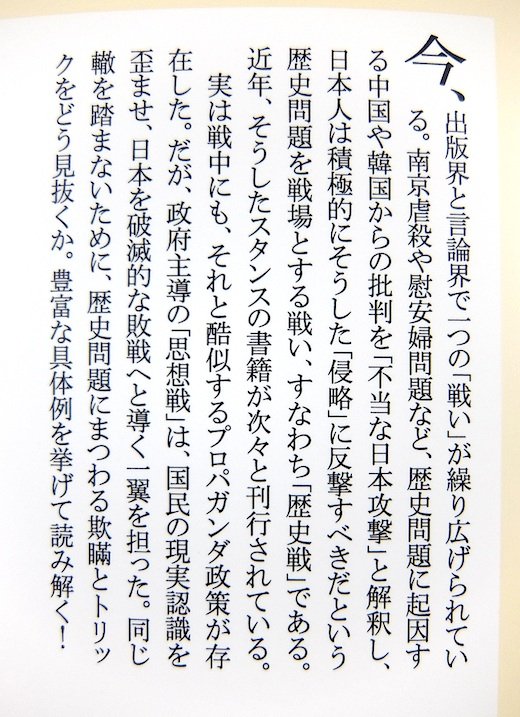 今、出版界と言論界で一つの「戦い」が繰り広げられてい
る。南京虐殺や慰安婦問題など、歴史問題に起因す
る中国や韓国からの批判を「不当な日本攻撃」と解釈し、
日本人は積極的にそうした「侵略」に反撃すべきだという
歴史問題を戦場とする戦い、すなわち「歴史戦」である。
近年、そうしたスタンスの書籍が次々と刊行されている。
実は戦中にも、それと酷似するプロパガンダ政策が存
在した。だが、政府主導の「思想戦」は、国民の現実認識を
歪ませ、日本を破滅的な敗戦へと導く一翼を担った。同じ
轍を踏まないために、歴史問題にまつわる欺瞞とトリッ
クをどう見抜くか。豊富な具体例を挙げて読み解く！